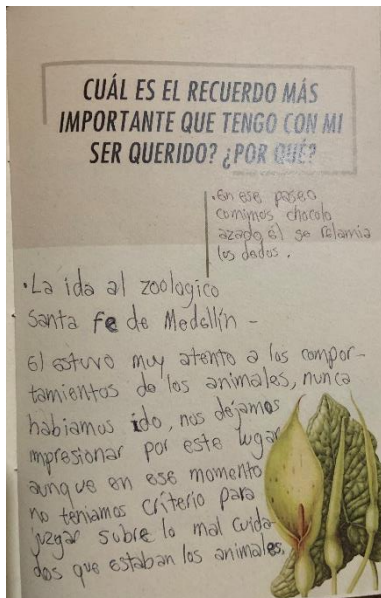 CUÁL ES EL RECUERDO MÁS
IMPORTANTE QUE TENGO CON MI
SER QUERIDO? ¿POR QUÉ?
•En ese paseo
comimos chocolo
azado él se relamia
los dedos.
•La ida al zoologico
Santa fe de Medellín -
El estuvo muy atento a los compor-
tamientos de los animales, nunca
habiamos ido, nos dejamos
impresionar por este lugar
aunque en ese momento
no teniamos criterio para
juzgar subre lo mal cuida-
dos que estaban los animales.